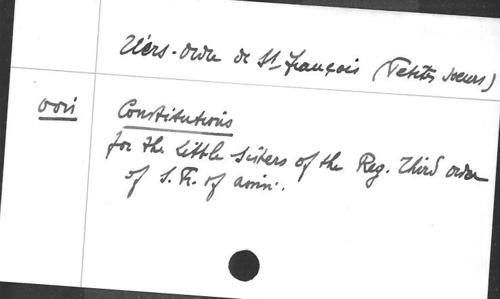 Tiers-Ordre de St François (Petites soeurs)
voir Constitutions
for the Little Sisters of the Reg. Third order
of S. Fr. of assisi.